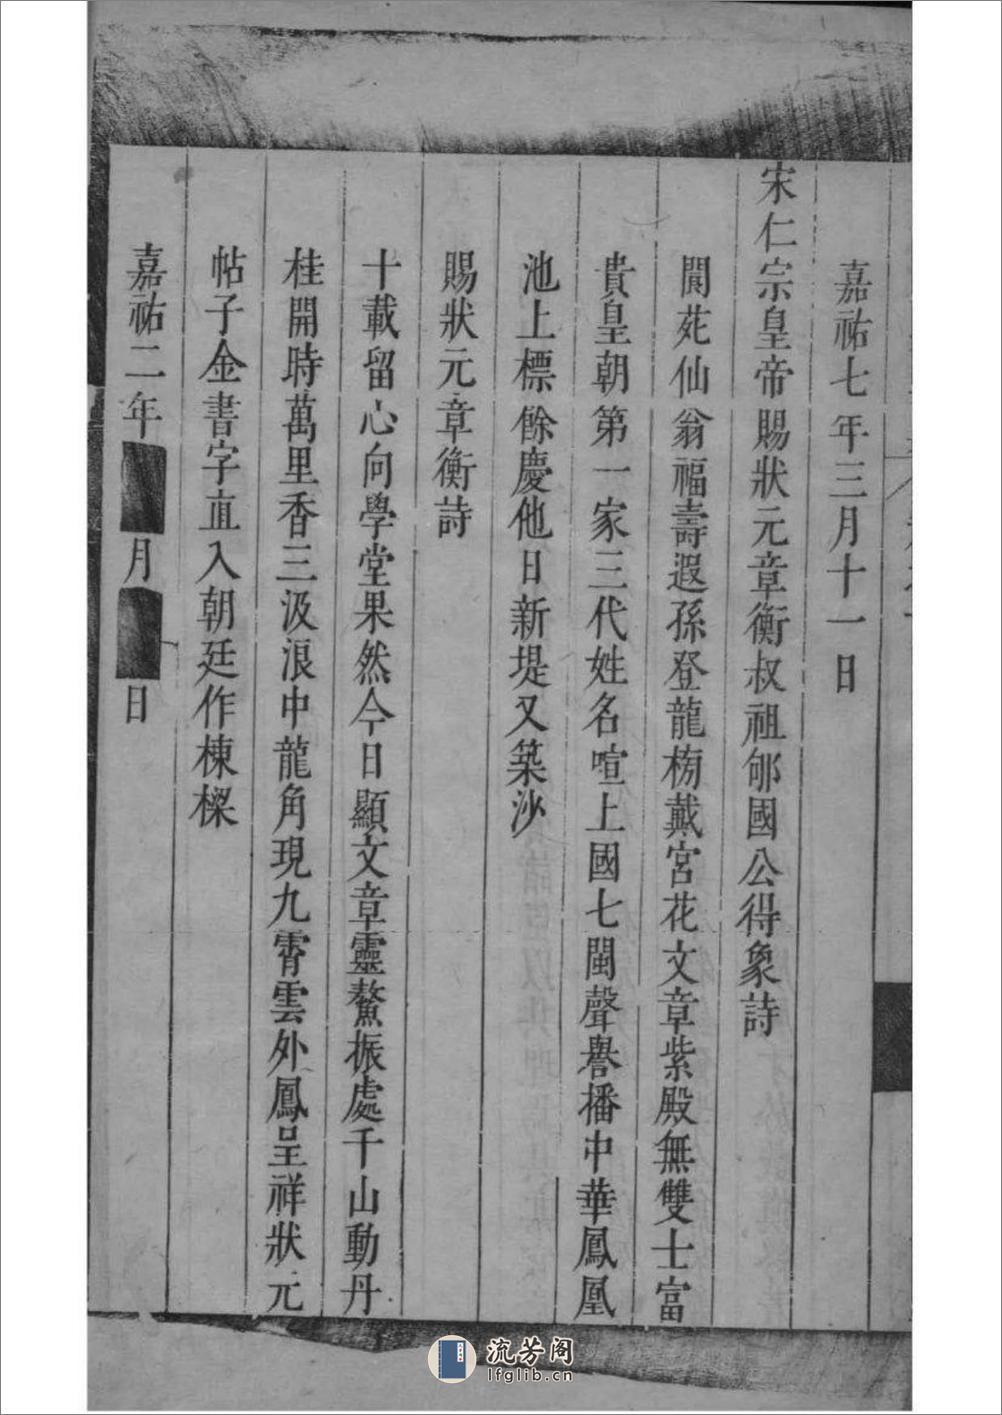 嘉祐七年三月十一日
宋仁宗皇帝賜狀元章衡叔祖郇國公得象詩
閬苑仙翁福壽遐孫登龍榜戴宮花文章紫殿無雙士富
貴皇朝第一家三代姓名喧上國七閩聲譽播中華鳳凰
池上標餘慶他日新堤又築沙
賜狀元章衡詩
十載留心向學堂果然今日顯文章靈鰲振處千山動丹
桂開時萬里香三汲浪中龍角現九霄雲外鳳呈祥狀元
帖子金書字直入朝廷作棟樑
嘉祐二年月日
流芳阁
lfglib.cn